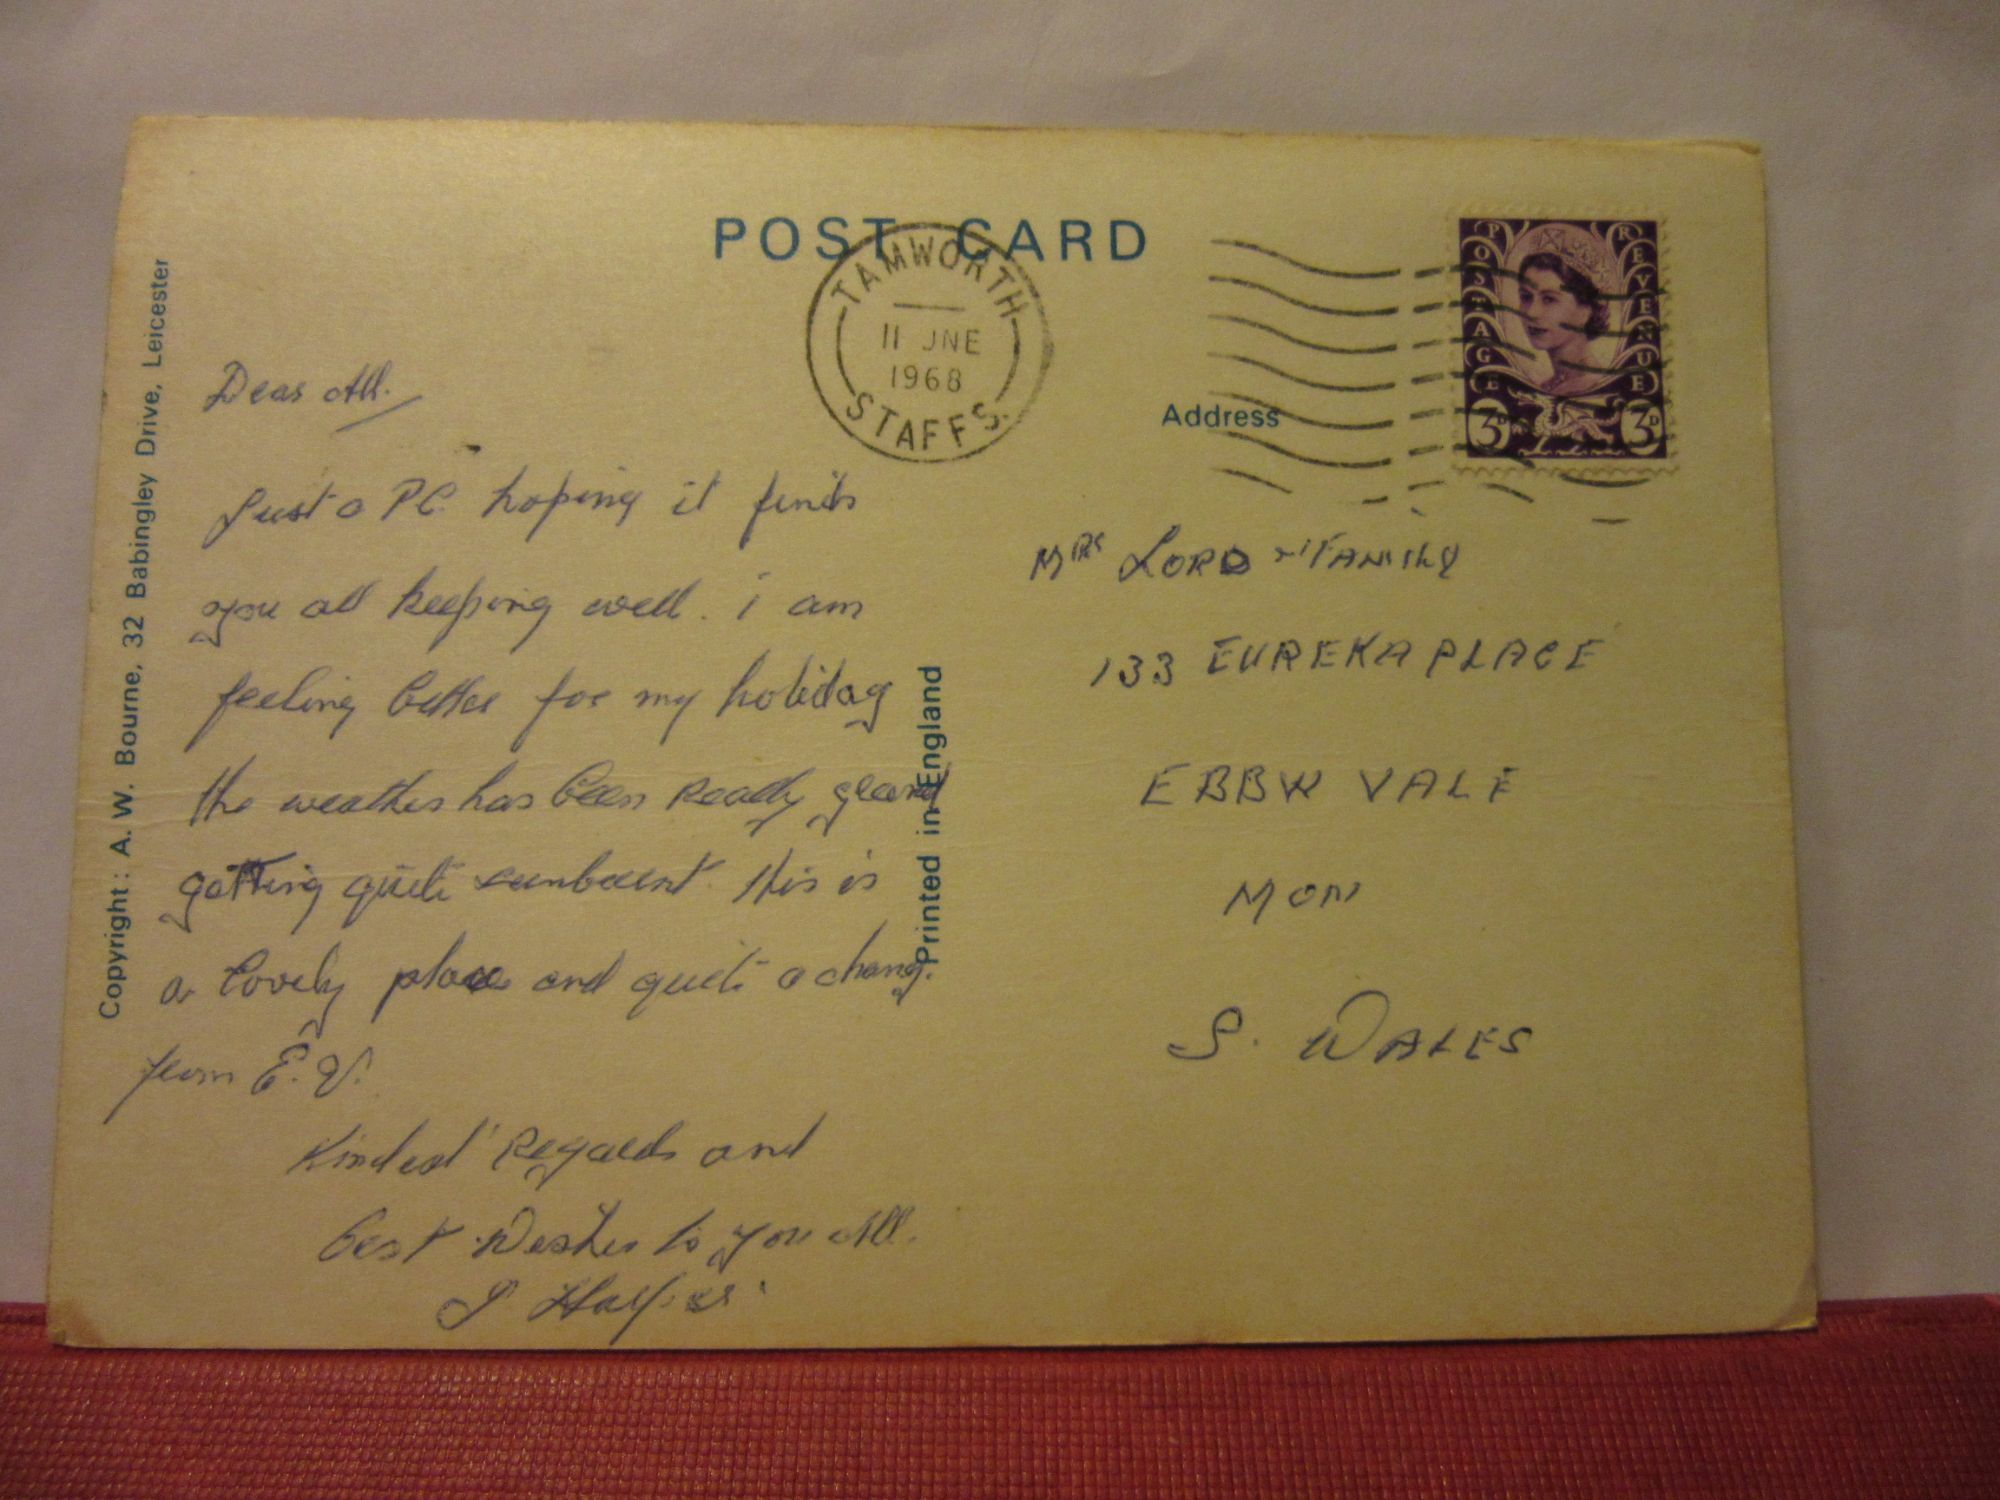 POST CARD
TAMWORTH
11 JNE
1968
STAFFS.
POSTAGE REVENUE
3D 3D
Address
Dear All.
Just a PC hoping it finds
you all keeping well. i am
feeling better for my holiday
the weather has been Really grand
getting quite sunburnt. this is
a lovely place and quite a change
from E.V.
Kindest Regards and
best Wishes to you All.
Mrs LORD & FAMILY
133 EUREKA PLACE
EBBW VALE
MON
S. WALES
Copyright: A. W. Bourne, 32 Babingley Drive, Leicester
Printed in England